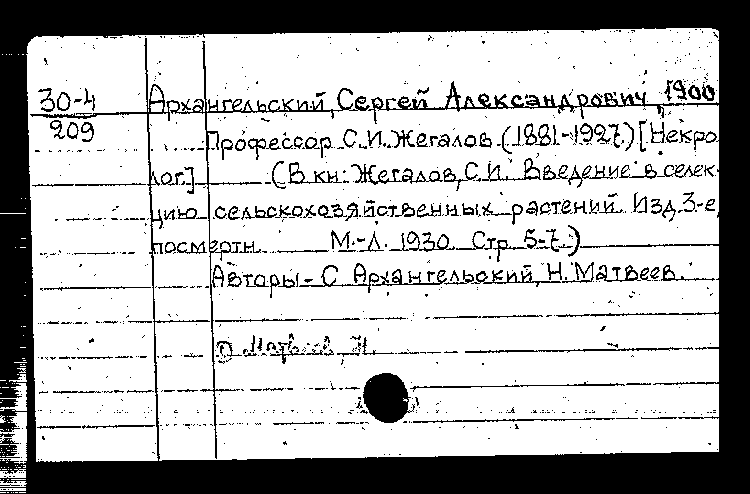 30-4
209
Архангельский, Сергей Александрович, 1900
Профессор С.И. Жегалов (1881-1927) [Некро
лог.] (В кн: Жегалов, С.И. Введение в селек-
цию сельскохозяйственных растений. Изд. 3-е,
посмертн. М.-Л. 1930. Стр. 5-7.)
Авторы - С Архангельский, Н. Матвеев.
① Матвеев, Н.